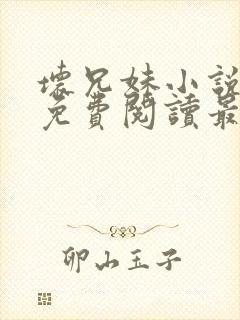 壞兄妹小說
免費閱讀最
卯山玉子